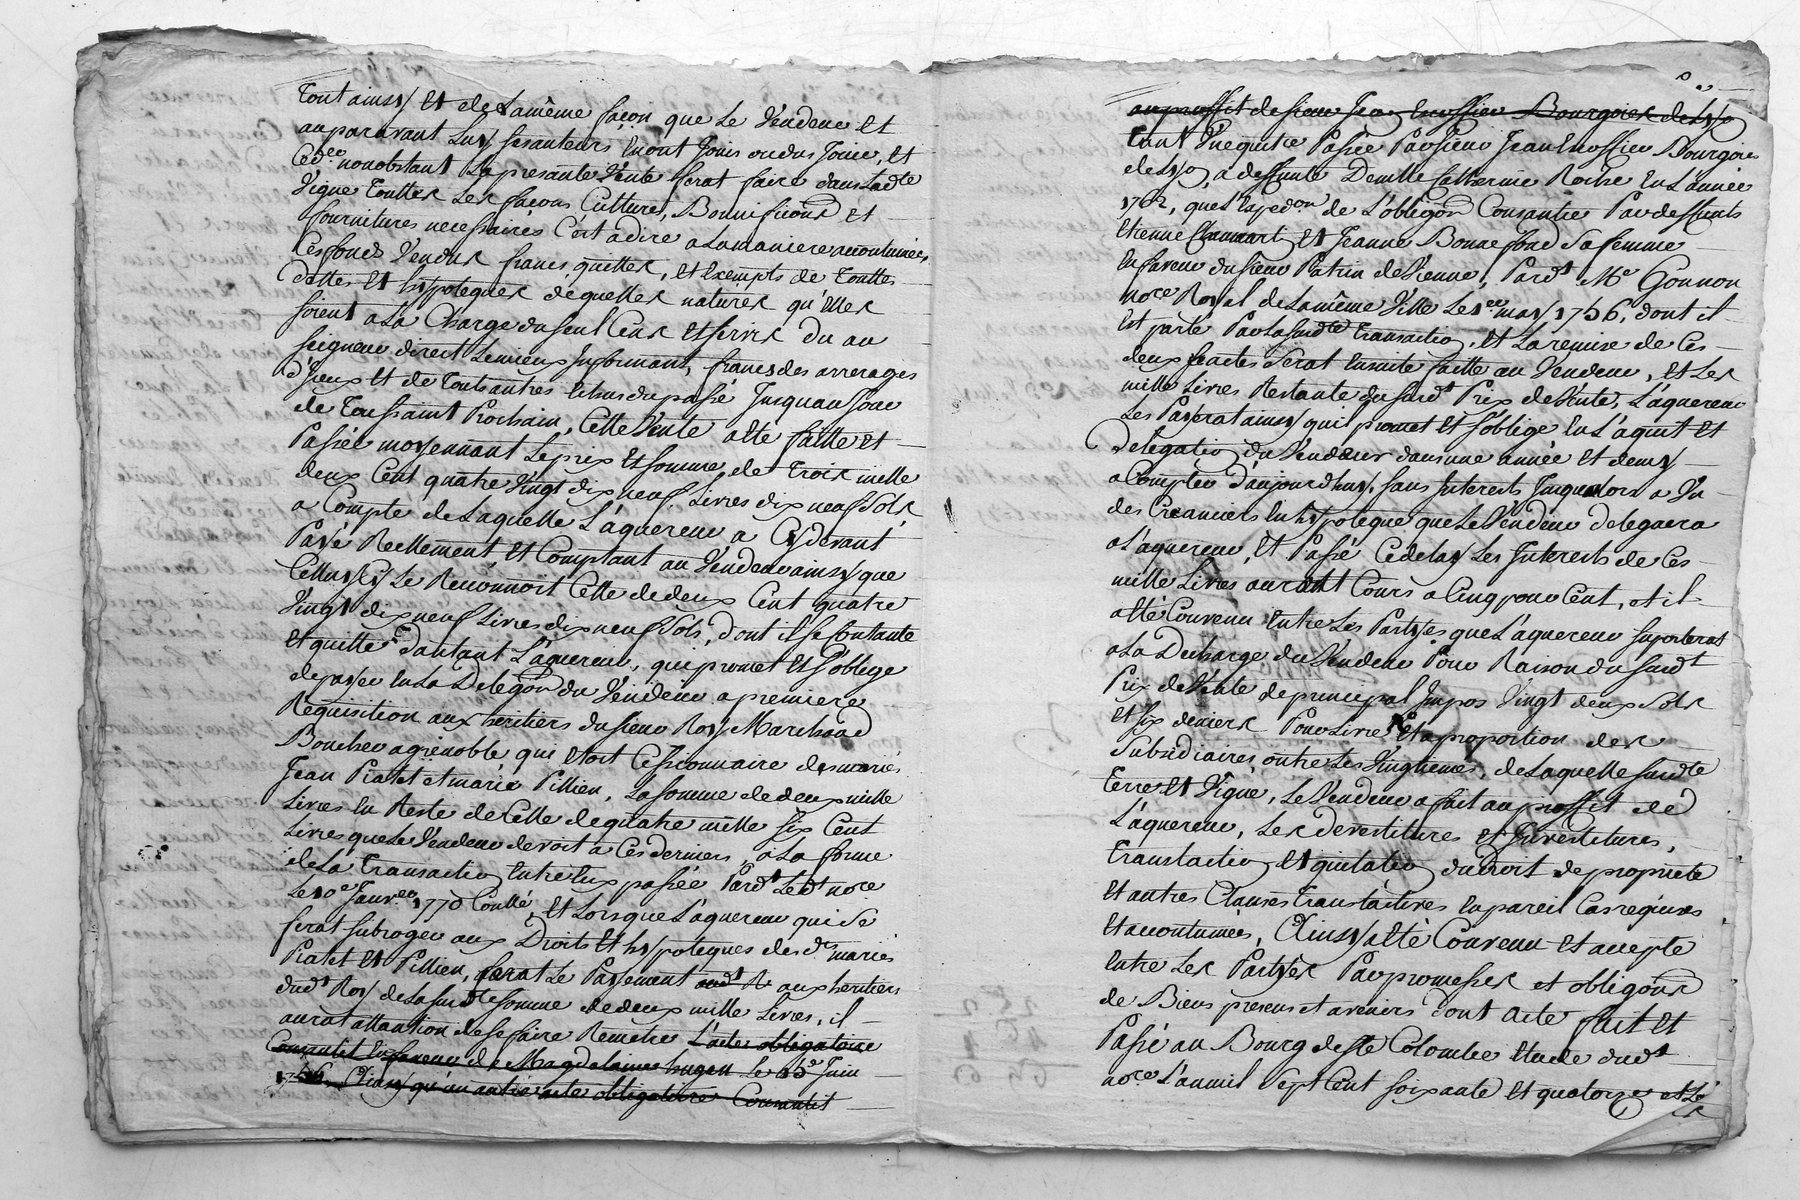 Tout ainsy et de la même façon que le Vendeur et
auparavant luy ses auteurs en ont Jouis ou dus Jouir, et
nonobstant la presante Vente serat faire dans ladte
Vigne Touttes les façons Cultures, Bonnificãons et
fournitures necessaires C'est a dire a la maniere accoutumées.
Ces fonds Vendus francs, quittes, et Exempts de Touttes
dettes et hypoteques dequelles natures qu'elles
soient a la Charge du seul Cens et servis du au
seigneur direct le mieux Informant, francs des arrerages
d'yceux et de Touts autres Echus du passé Jusqu'au Jour
de Toussaint Prochain, Cette Vente a Eté faitte et
Passée moyennant le prix et somme de Trois mille
deux Cent quatre Vingt dix neuf Livres dix neuf Sols
a Compte de Laquelle L'aquereur a Cydevant
Payé Reellement et Comptant au Vendeur ainsy que
Celluy Cy le Reconnoit Celle de deux Cent quatre
Vingt dix neuf Livres dix neuf Sols, dont il se Contante
et quitte d'autant L'aquereur, qui promet et S'oblige
de payer en la Delegãon du Vendeur a premiere
Requisition aux heritiers du sieur Roy Marchand
Boucher a grenoble qui etoit Cessionnaire des mariés
Jean Piatet et marie Pillien, la somme de deux mille
Livres En Reste de Celle de quatre mille six Cent
Livres que le Vendeur devoit a Ces derniers, a la forme
de la Transaction Entre Eux passée Pardt Ledt nore
Le 10e Janver 1770 Collé, et Lorsque L'aquereur qui Se
ferat subroger aux Droits et hypoteques desdts mariés
Piatet et Pillien, ferat le Payement audt R aux heritiers
dudt Roy de la susdte somme de deux mille Livres, il
aurat attantion de se faire Remetre L'acte obligatoire
Consantit En faveur de Magdelaine hugon Le 15e Juin
1756, Ainsy qu'un autre acte obligatoire Consantit
au proffit de sieur Jean Bourgois de Lyo
Tant Passée Par sieur Jean Bourgois
de Lyo, a deffunte Demlle Catherine Roche En L'année
1762, que L'Exped.on de L'obligãon Consantie Par deffunts
Etienne et Jeanne Bonnefond Sa femme
En faveur du sieur Patrin de Vienne, Pardt Me Gonnon
nore Royal de la même Ville Le 1er may 1756, dont il
Est parlé Par la susdte Transaction, et la remise de Ces
deux actes Serat Ensuite faitte au Vendeur, et Les
mille Livres Restante du susdt Prix de Vente, L'aquereur
Les Payerat ainsy qu'il promet et S'oblige En L'aquit et
Delegation du Vendeur dans une année et demy
a Compter d'aujourd'huy, sans Interets Jusqu'alors a Un
des Creanciers En hypoteque que le Vendeur deleguera
a L'aquereur, et Passé Ce delay Les Interets de Ces
mille Livres auront Cours a Cinq pour Cent, et il
a eté Convenu Entre Les Partyes que L'aquereur suporterat
a la Decharge du Vendeur Pour Raison du susdt
Prix de Vente de principal Impos Vingt deux Sols
et six deniers Pour Livre et a proportion des
Subsidiaires outre Les Vingtiemes, de Laquelle susdte
Terre et Vigne, Le Vendeur a fait au proffit de
L'aquereur, Les devestitures et Investitures,
Translation et quitation du Droit de proprieté
et autres Clauses Translatives En pareil Cas requises
et accoutumées, Ainsy a eté Convenu et accepté
Entre Les Partyes Par promesses et obligãons
de Biens presens et avenirs Dont Acte fait et
Passé au Bourg de Ste Colombe Etude dudt
nore L'an mil Sept Cent soixante et quatorze et Le